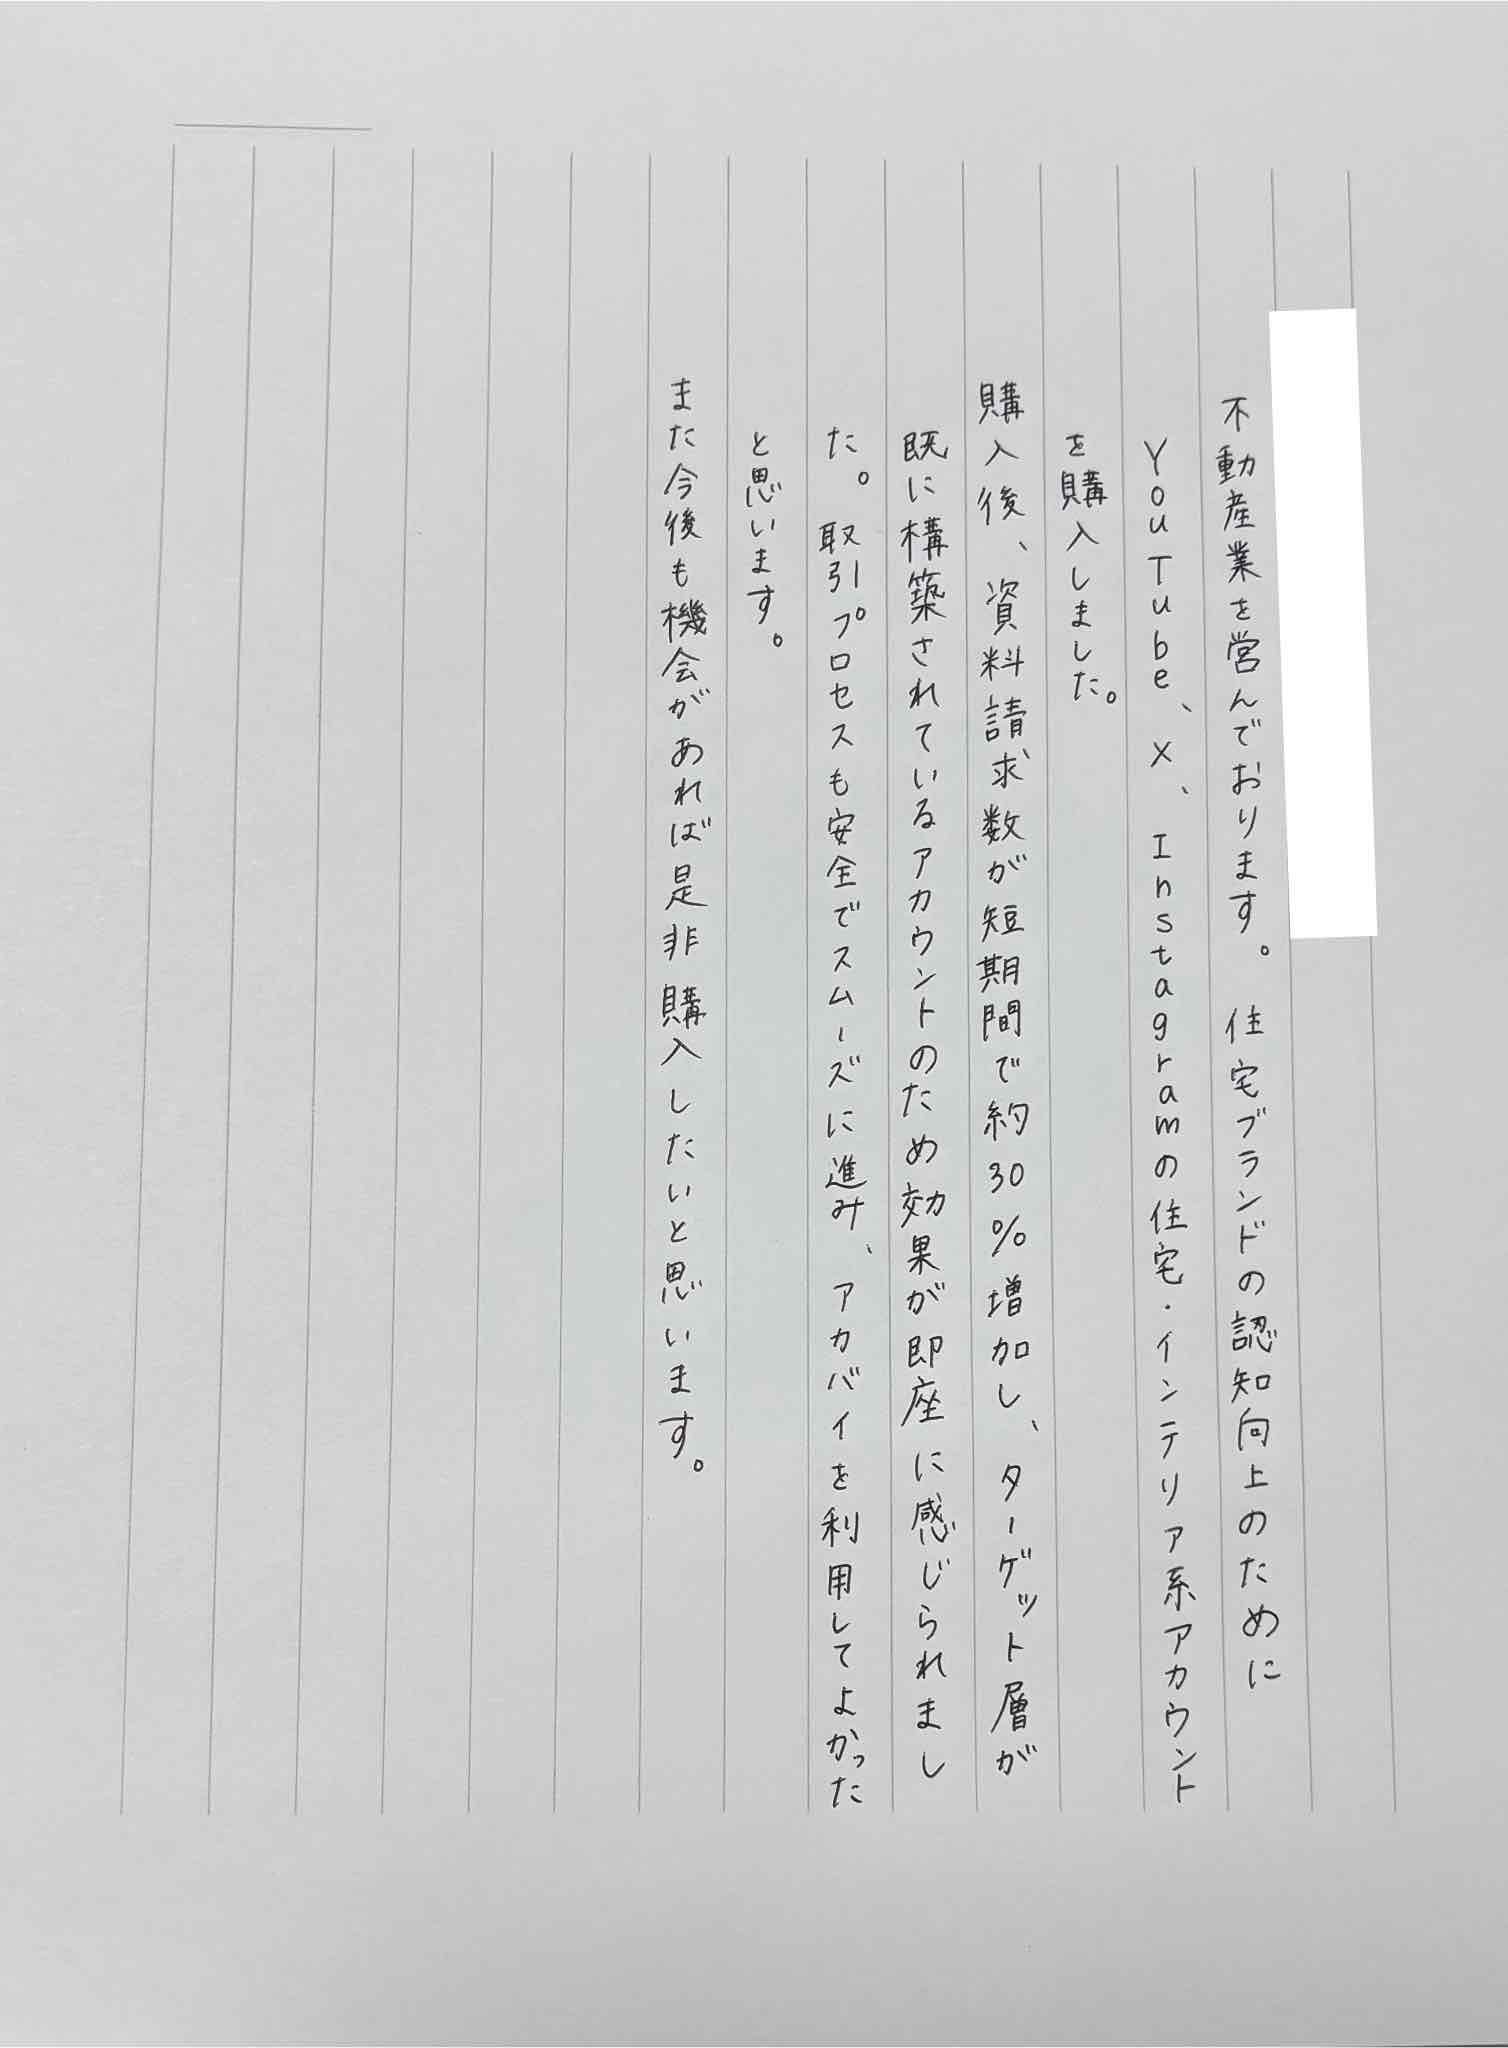 不動産業を営んでおります。住宅ブランドの認知向上のために
YouTube、X、Instagramの住宅・インテリア系アカウント
を購入しました。
購入後、資料請求数が短期間で約30%増加し、ターゲット層が
既に構築されているアカウントのため効果が即座に感じられまし
た。取引プロセスも安全でスムーズに進み、アカバイを利用してよかった
と思います。
また今後も機会があれば是非購入したいと思います。